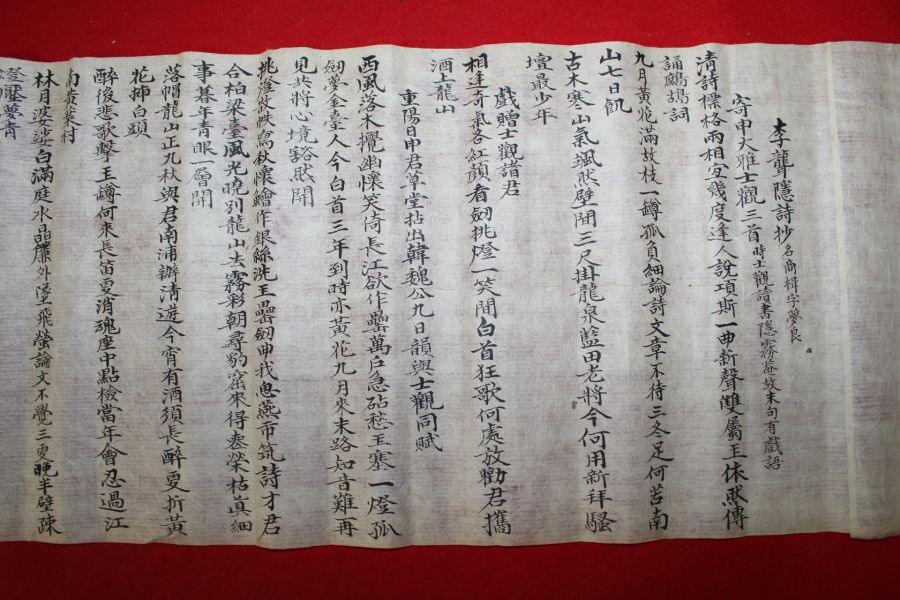 李聾隱詩抄 名商楫字夢良
寄申大雅士觀三首 時士觀讀書隱霧菴故末句有戲語
清詩標格兩相宜幾度逢人說項斯一曲新聲雙屬玉依然傳
誦鷓鴣詞
九月黃花滿故枝一罇孤負細論詩文章不待三冬足何苦南
山七日飢
古木寒山氣颯然壁間三尺掛龍泉藍田老將今何用新拜騷
壇最少年
戲贈士觀諸君
相逢奇氣各紅顔看劒挑燈一笑間白首狂歌何處放勸君攜
酒上龍山
重陽日申君草堂拈出韓魏公九日韻與士觀同賦
西風落木攪幽懷笑倚長江欲作罍萬戶急砧愁玉塞一燈孤
劒夢金臺人今白首三年到時亦黃花九月來末路知音難再
見共將心境豁然開
挑燈故故寫秋懷鱠作銀絲洗玉罍劒甲我思燕市筑詩才君
合柏梁臺風光曉別龍山去霧彩朝尋豹窟來得喪榮枯眞細
事暮年靑眼一層開
落帽龍山正九秋與君南浦辦清遊今宵有酒須長醉更折黃
花揷白頭
醉後悲歌擊玉罇何來長笛更消魂座中點檢當年會忍過江
南黃葉村
林月波娑白滿庭水晶簾外墜飛螢論文不覺三更晚半壁疎
燈照夢靑